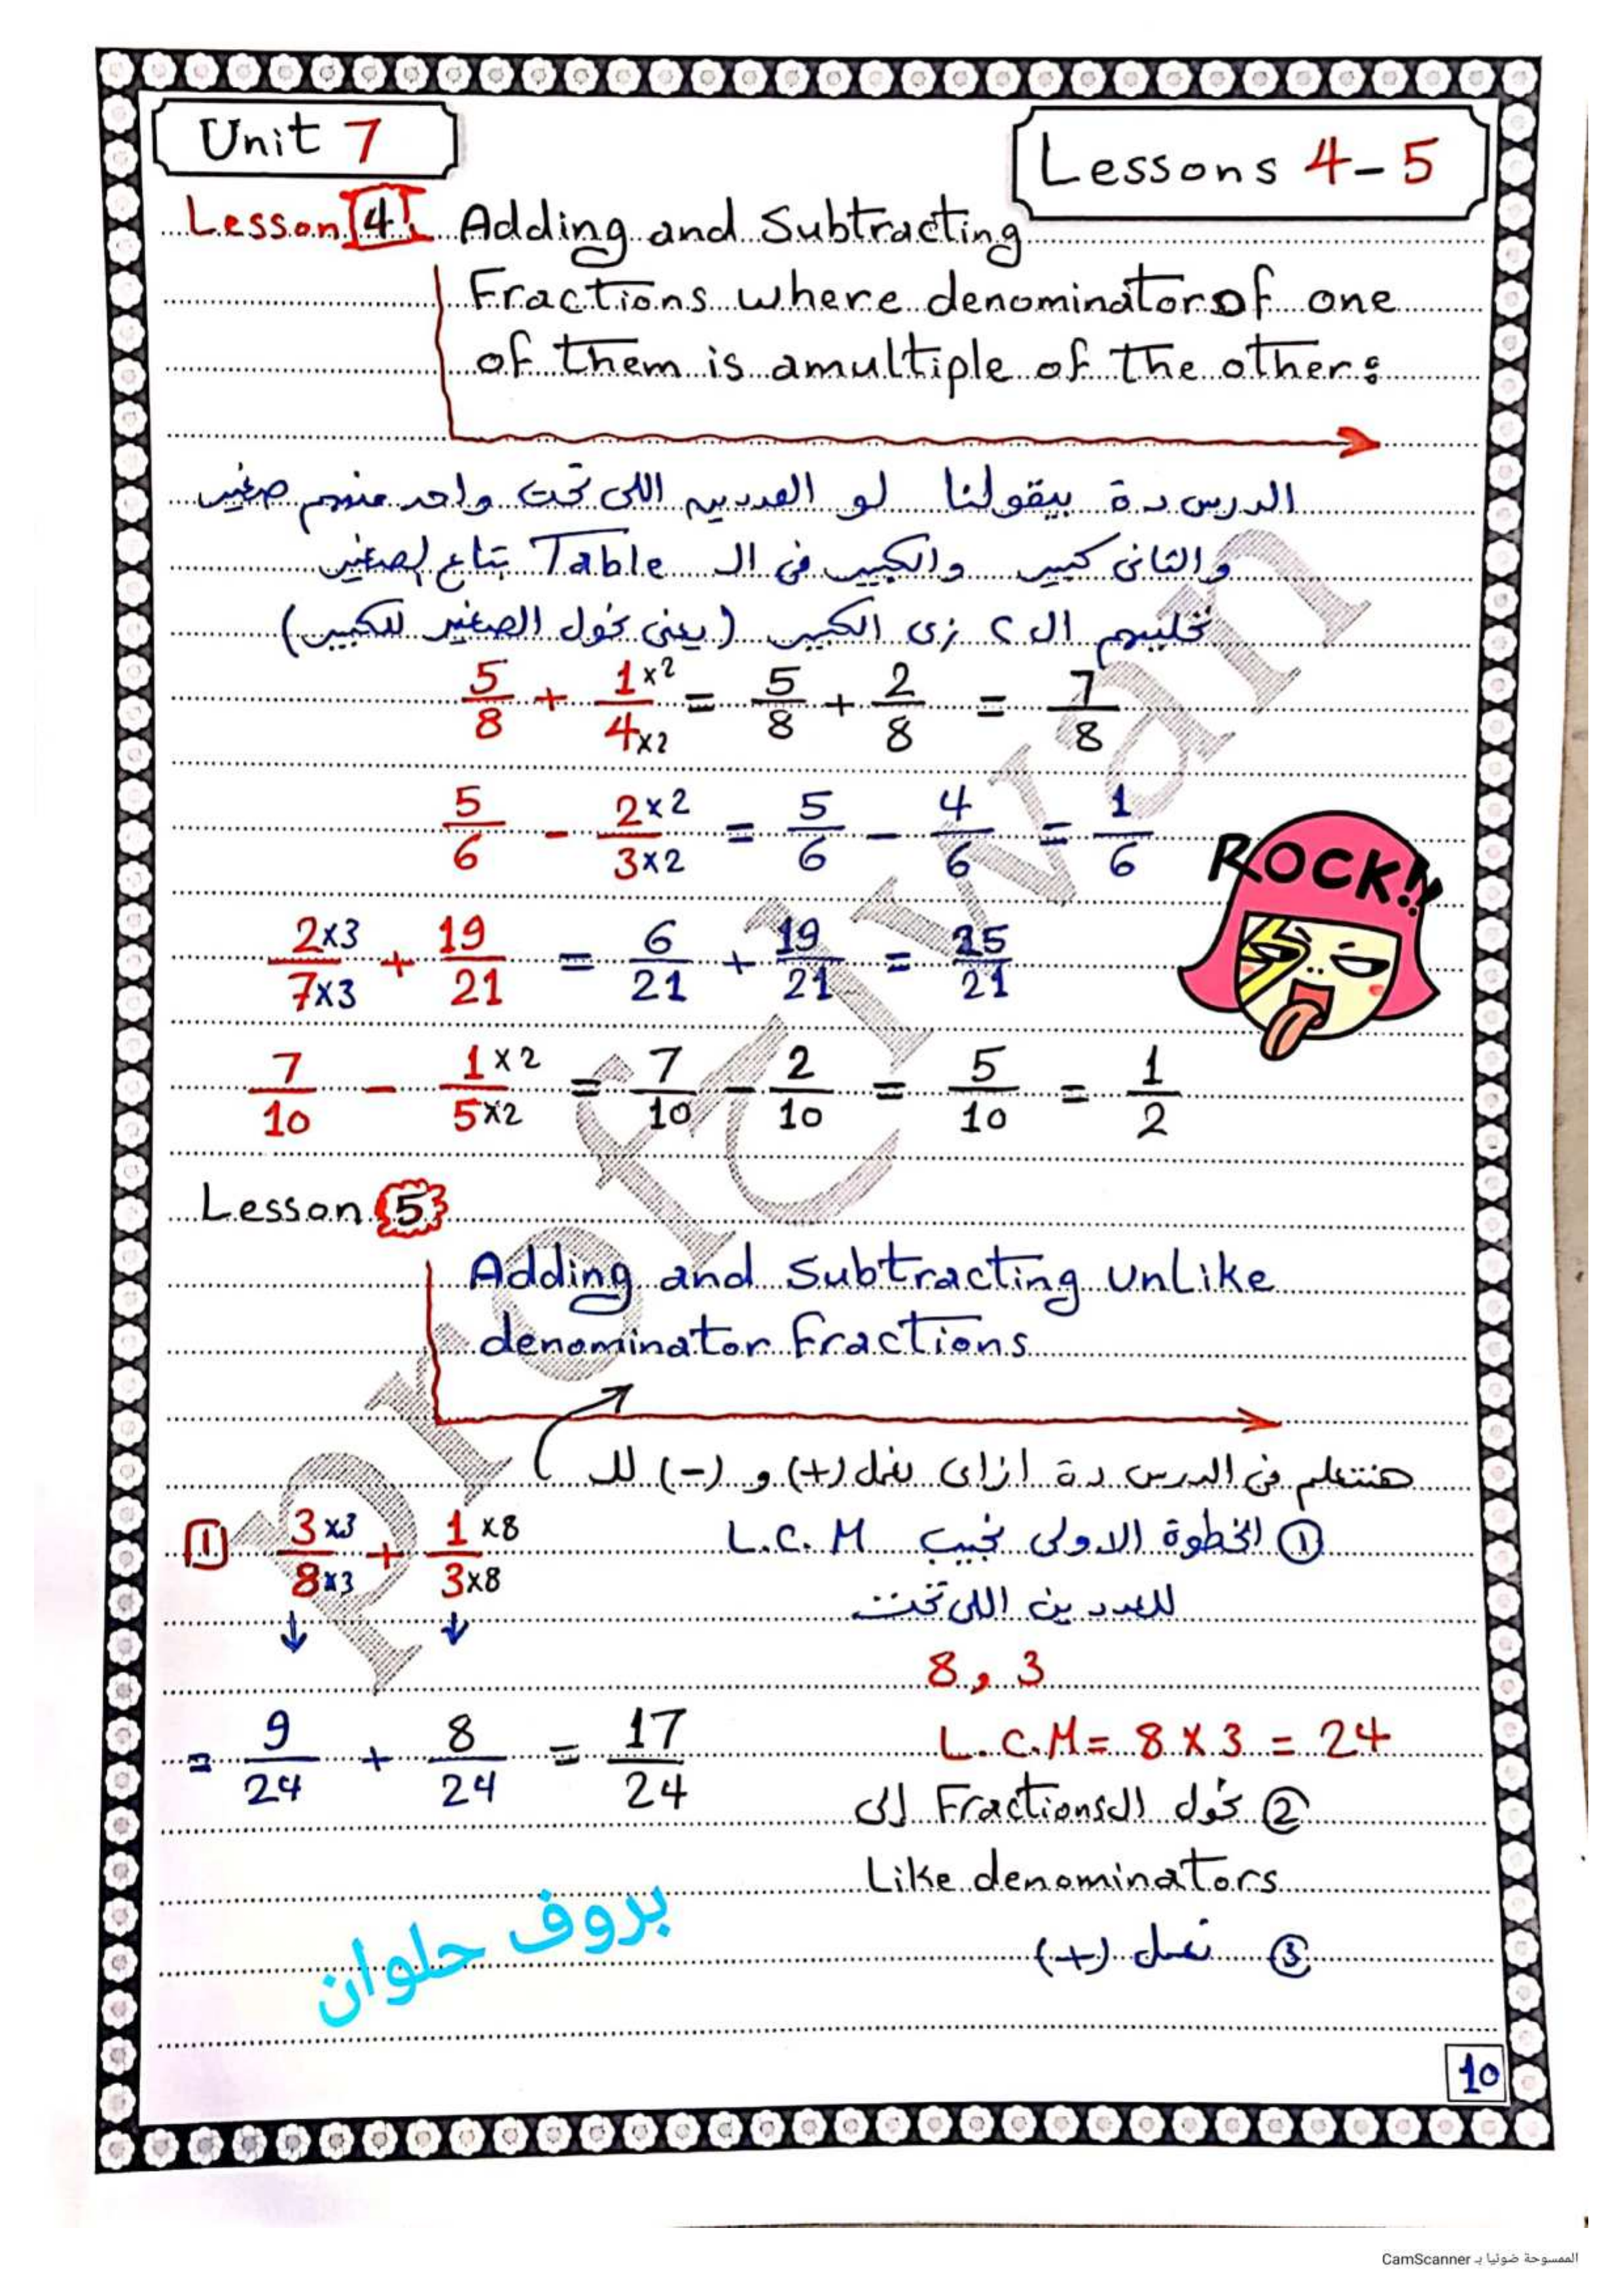 Unit 7
Lessons 4-5
Lesson 4 Adding and Subtracting
Fractions where denominator of one
of them is a multiple of the other:
الدرس دة بيقولنا لو العددين اللى تحت واحد منهم صغير
والثانى كبير والكبير فى الـ Table بتاع الصغير
نخليهم الـ ٢ زى الكبير (يعنى نحول الصغير للكبير)
5/8 + 1×2/4×2 = 5/8 + 2/8 = 7/8
5/6 - 2×2/3×2 = 5/6 - 4/6 = 1/6
ROCK!!
2×3/7×3 + 19/21 = 6/21 + 19/21 = 25/21
7/10 - 1×2/5×2 = 7/10 - 2/10 = 5/10 = 1/2
Lesson 5
Adding and Subtracting UnLike
denominator Fractions
هنتعلم فى الدرس دة ازاى نعمل (+) و (-) للـ
1 3×3/8×3 + 1×8/3×8
① الخطوة الاولى نجيب L.C.M
للعددين اللى تحت
8, 3
= 9/24 + 8/24 = 17/24
L.C.M = 8 × 3 = 24
② نحول الـ Fractions إلى
Like denominators
③ نعمل (+)
بروف حلوان
10
Prof Helwan
الممسوحة ضوئيا بـ CamScanner